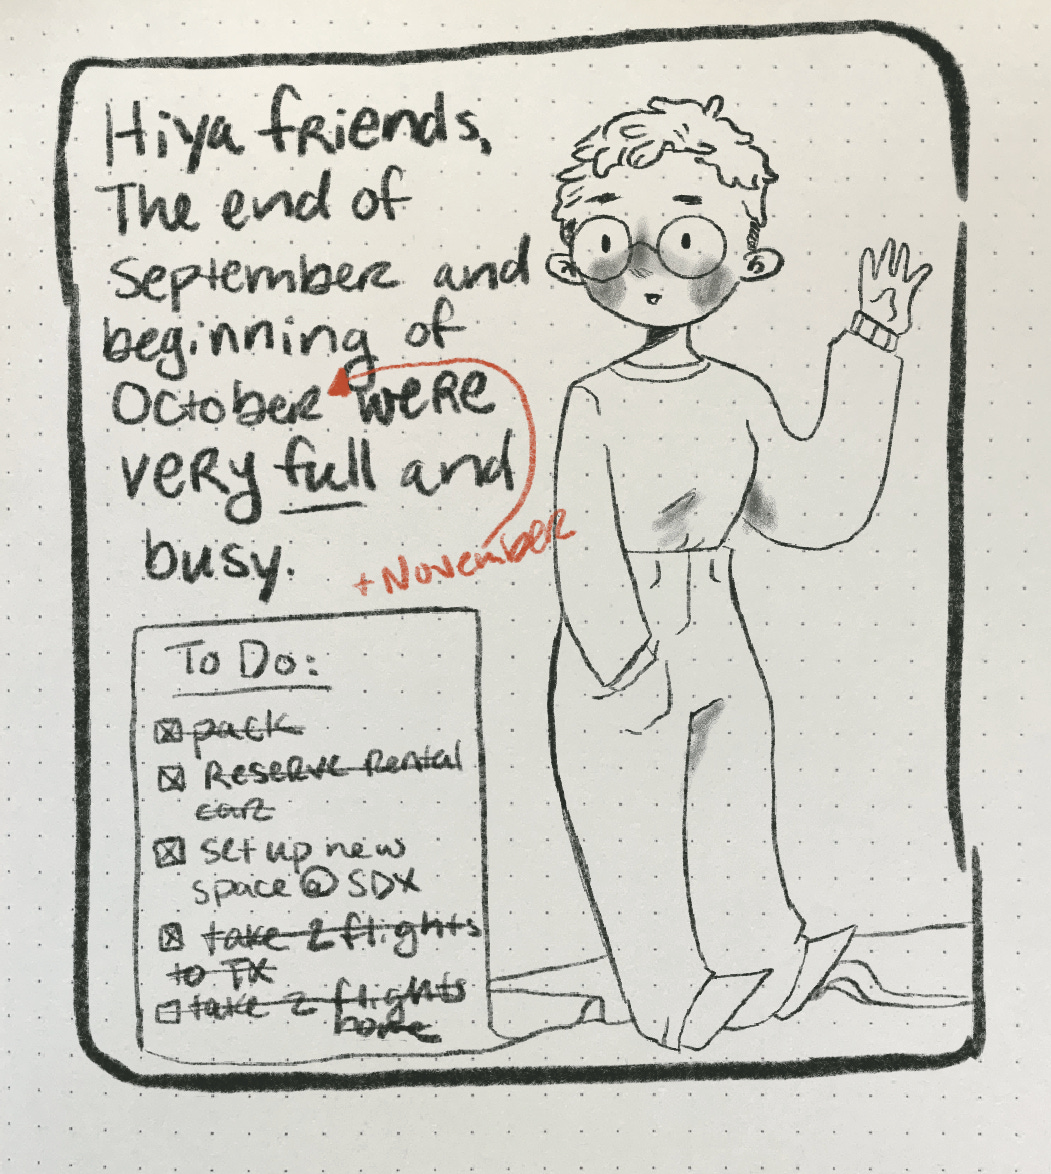 Hiya friends,
The end of
September and
beginning of
October were
very full and
busy.
+ November
To Do:
pack
Reserve Rental
car
set up new
space @ SDX
take 2 flights
to TX
take 2 flights
home